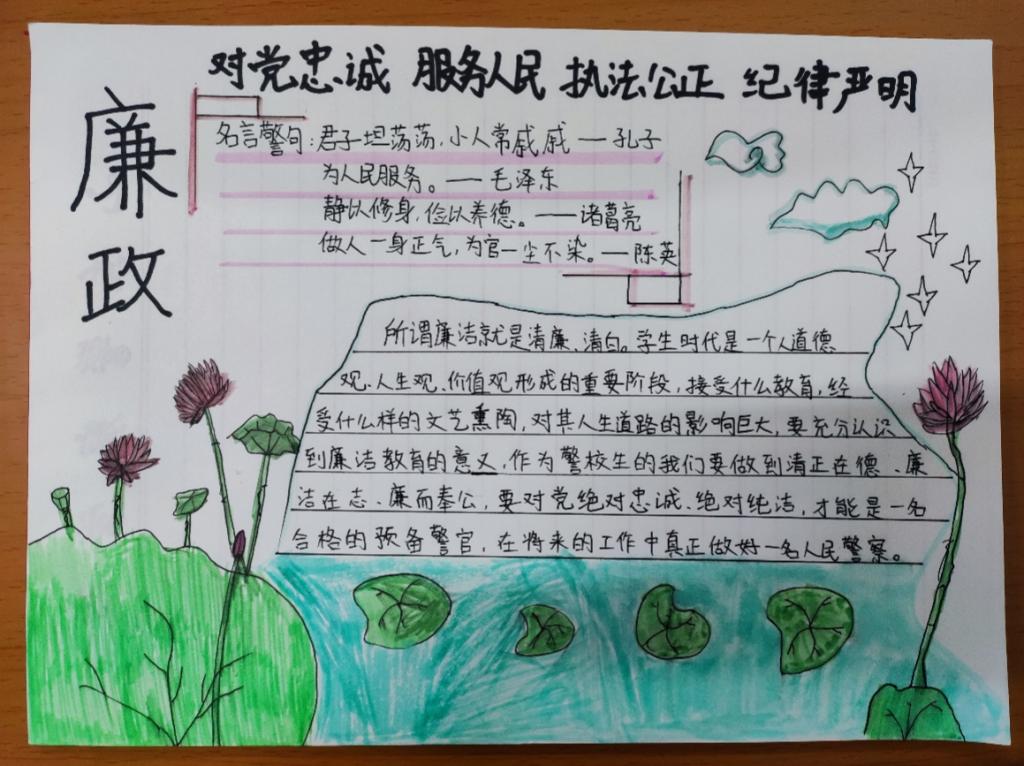 对党忠诚 服务人民 执法公正 纪律严明
廉政
名言警句:君子坦荡荡,小人常戚戚 — 孔子
为人民服务。— 毛泽东
静以修身,俭以养德。— 诸葛亮
做人一身正气,为官一尘不染。— 陈英
所谓廉洁就是清廉、清白。学生时代是一个人道德
观、人生观、价值观形成的重要阶段,接受什么教育,经
受什么样的文艺熏陶,对其人生道路的影响巨大,要充分认识
到廉洁教育的意义,作为警校生的我们要做到清正在德、廉
洁在志、廉而奉公,要对党绝对忠诚、绝对纯洁,才能是一名
合格的预备警官,在将来的工作中真正做好一名人民警察。